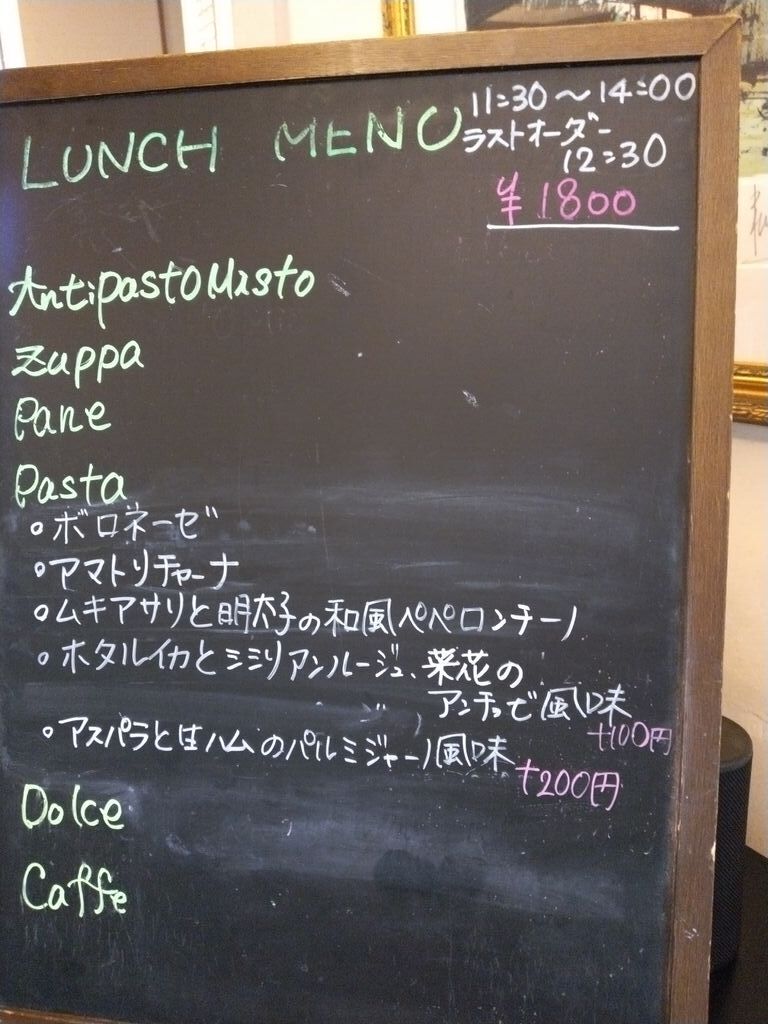 LUNCH MENU
11:30〜14:00
ラストオーダー
12:30
¥1800
Antipasto Misto
Zuppa
Pane
Pasta
○ボロネーゼ
○アマトリチャーナ
○ムキアサリと明太子の和風ペペロンチーノ
○ホタルイカとミミリアンルージュ、菜花の
アンチョビ風味
+100円
○アスパラと生ハムのパルミジャーノ風味
+200円
Dolce
Caffe